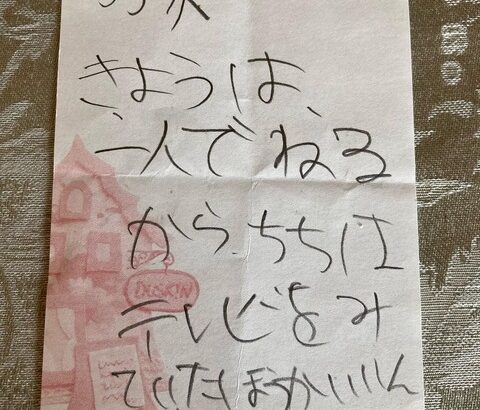 きようは、
一人でねる
から、ちちは
DUSKIN
テレビをみ
ていたほうかいいん